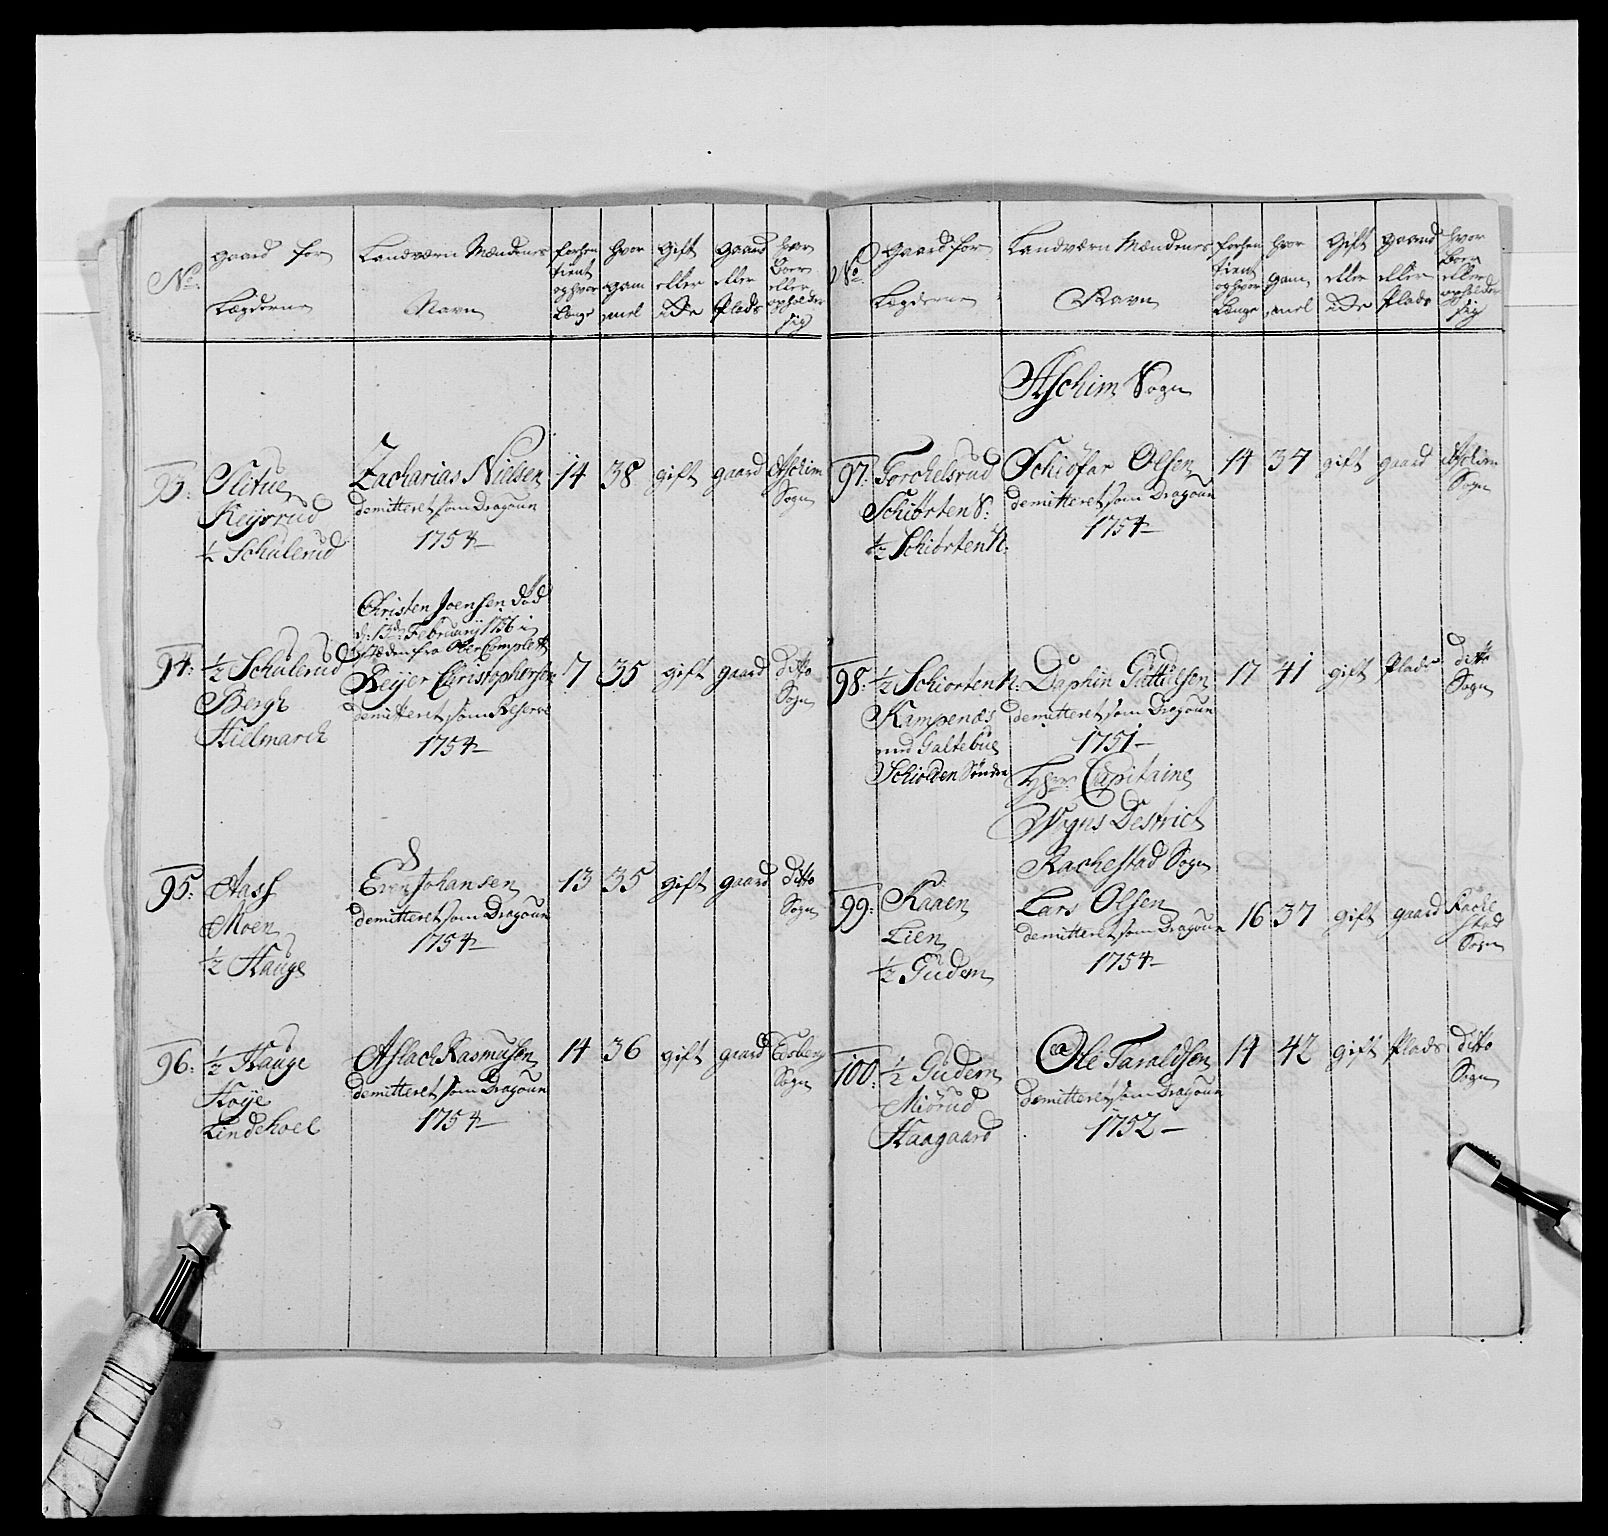 No.
Gaard for
Lægderne
Landværn Mændenes
Navn
forhen
tient
og hvor
længe
hvor
gam
mel
Gift
eller
Ei
Gaard
eller
Plads
hvor
boer
eller
opholder
sig
93:
Slitue
Keyserud
½ Schulerud
Zacharias Nielsen
demitteret som Dragoun
1754
14
38
gift
gaard
Aschim
Sogn
94:
½ Schulerud
Bergh
Hielmarch
Christen Joensen død
d: 13de February 1756 i
steden fra Ober Complett
Reijer Christophersen
demitteret som Reserve
1754
7
35
gift
gaard
ditto
Sogn
95:
Aass
Moen
½ Hauge
Even Johansen
demitteret som Dragoun
1754
13
35
gift
gaard
ditto
Sogn
96:
½ Hauge
Høije
Lindehoel
Aslach Rasmusen
demitteret som Dragoun
1754
14
36
gift
gaard
Edsberg
Sogn
No.
Gaard for
Lægderne
Landværn Mændenes
Navn
forhen
tient
og hvor
længe
hvor
gam
mel
Gift
eller
Ei
Gaard
eller
Plads
hvor
boer
eller
opholder
sig
Aschim Sogn
97:
Torchelsrud
Schiørten S:
½ Schiørten N:
Schiøfar Olsen
demitteret som Dragoun
1754
14
37
gift
gaard
Aschim
Sogn
98:
½ Schiorten N:
Kampenæs
med Galtebue
Schiolden Søndre
Daphin Guttulsen
demitteret som Dragoun
1751
17
41
gift
Plads
ditto
Sogn
Hr: Capitaine
Wogns Destrict
Rachestad Sogn
99:
Kaaen
Lien
½ Gudem
Lars Olsen
demitteret som Dragoun
1754
16
37
gift
gaard
Rache
stad
Sogn
100:
½ Gudem
Miørud
Haagaard
Ole Taraldsen
demitteret som Dragoun
1752
14
42
gift
Plads
ditto
Sogn